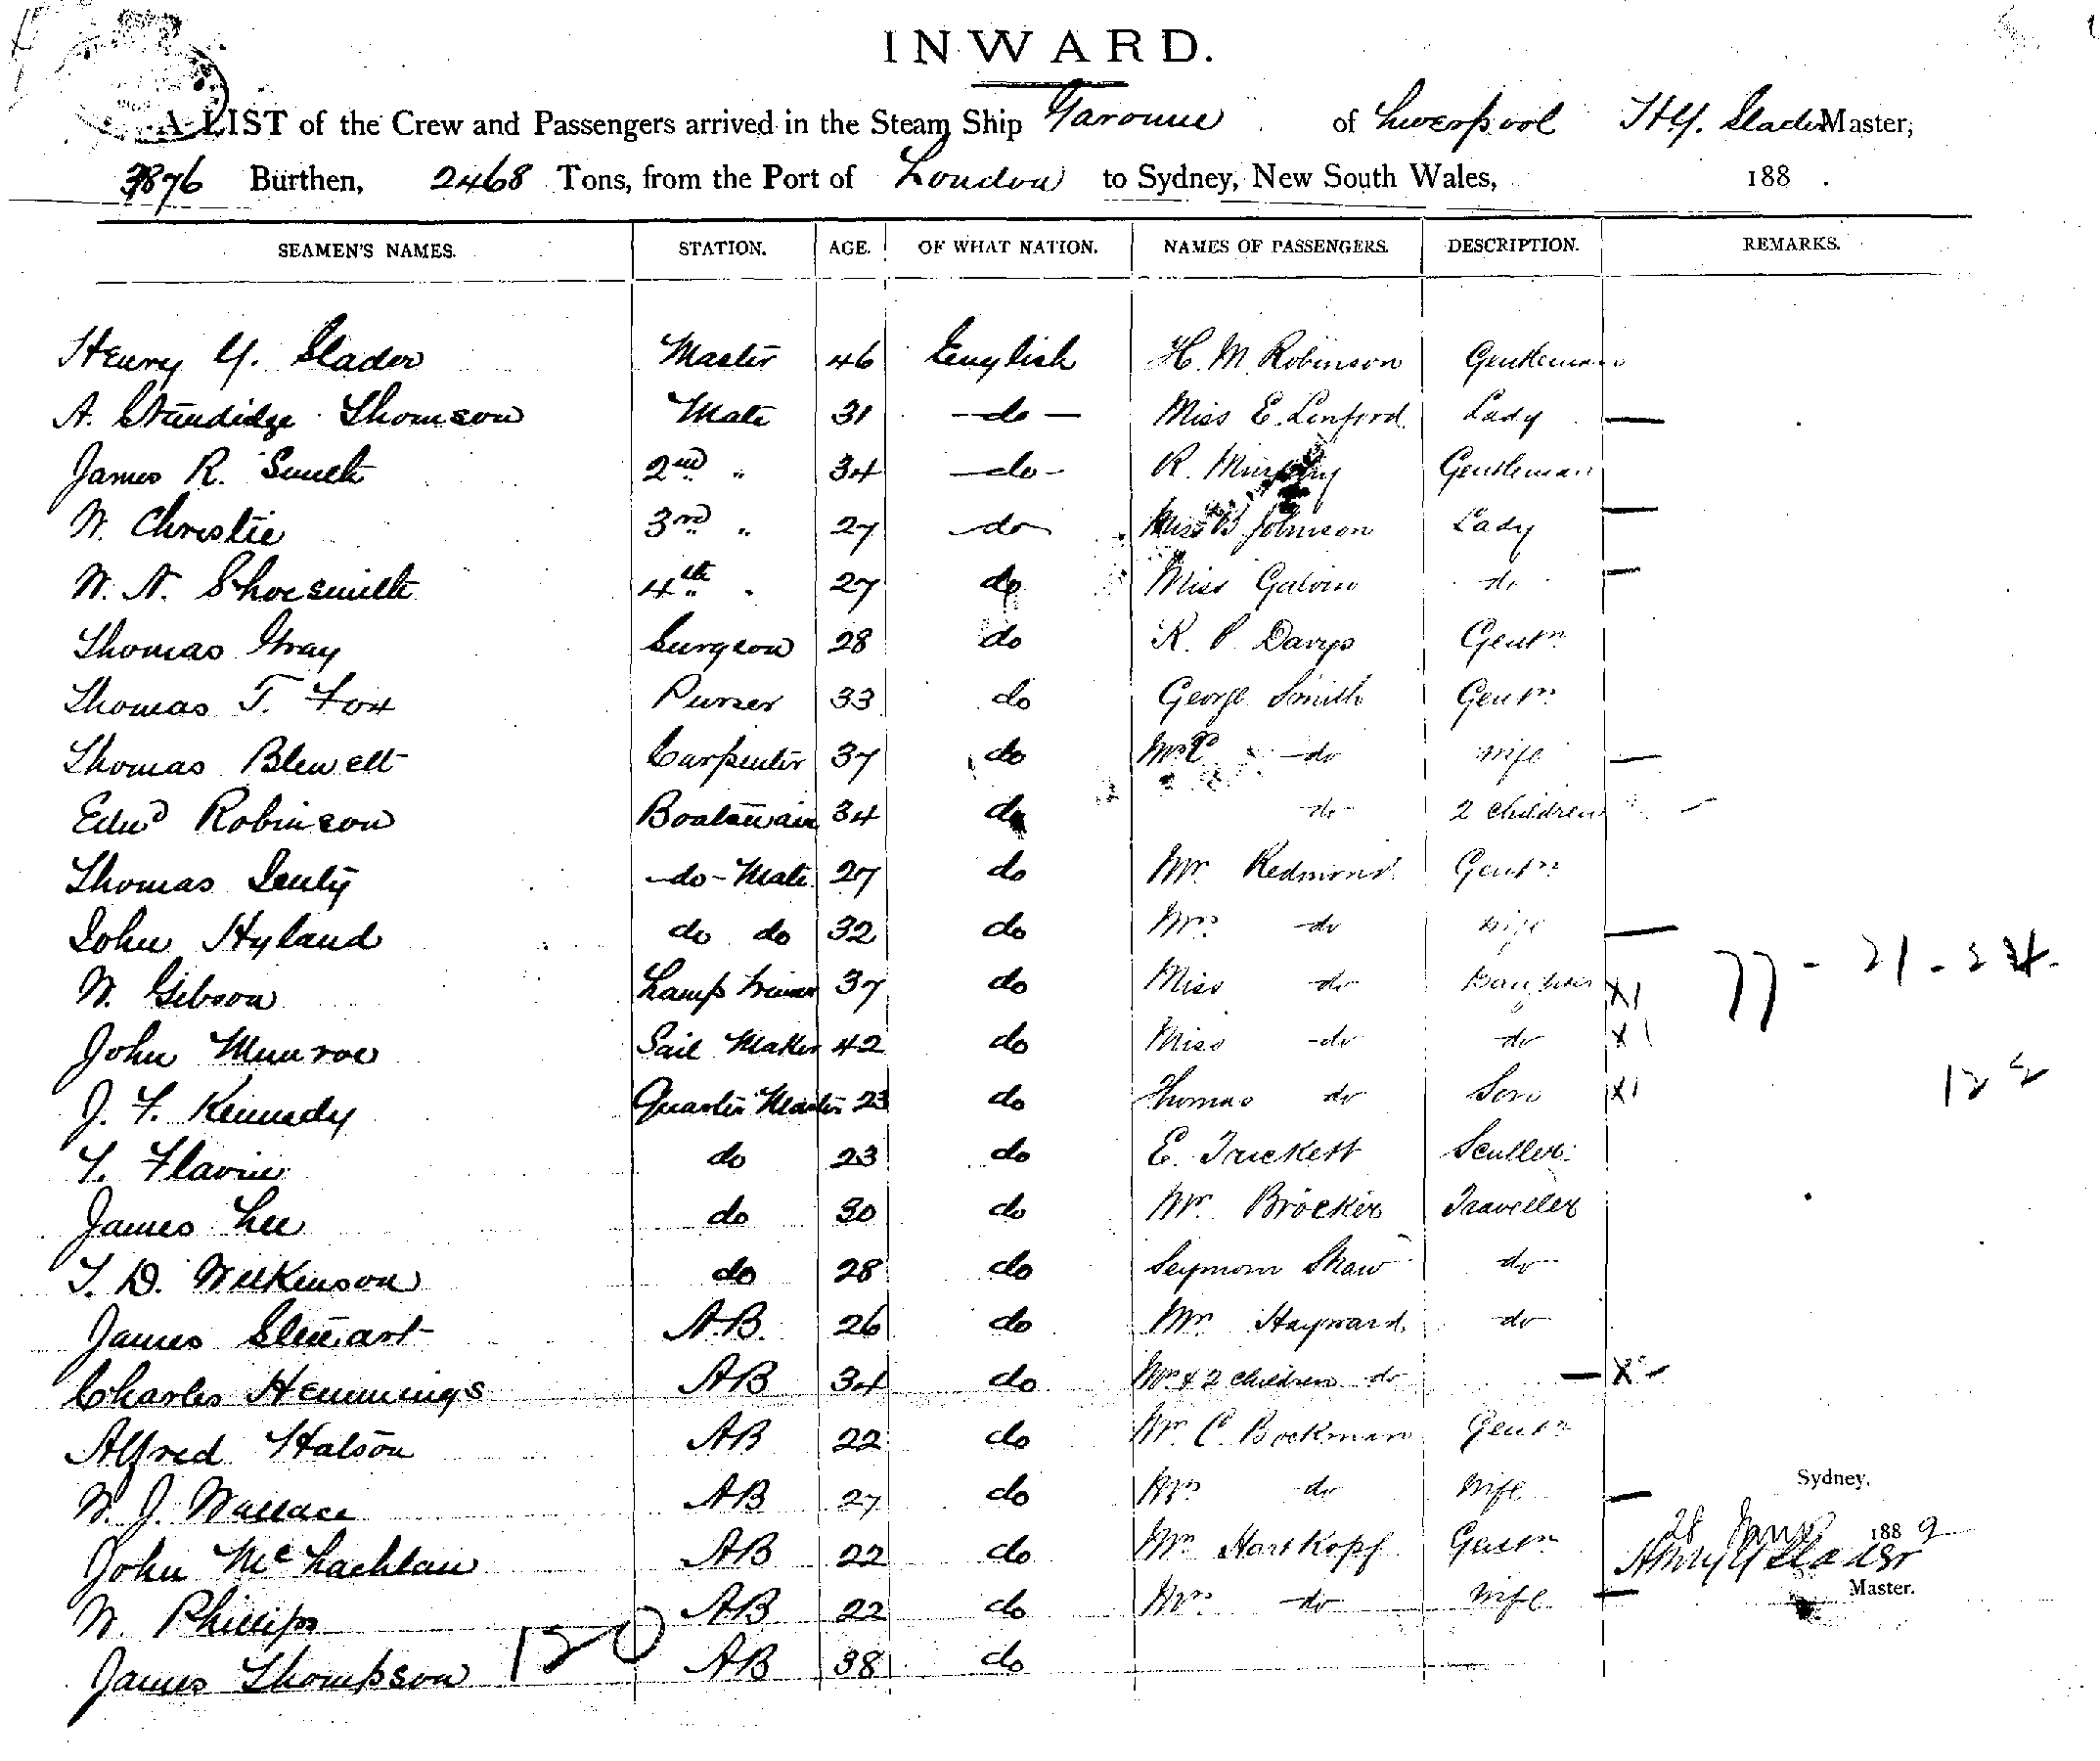 INWARD.
A LIST of the Crew and Passengers arrived in the Steam Ship Garonne of Liverpool HY. Slader Master,
3876 Burthen, 2468 Tons, from the Port of London to Sydney, New South Wales, 188 .
SEAMEN'S NAMES. STATION. AGE. OF WHAT NATION. NAMES OF PASSENGERS. DESCRIPTION. REMARKS.
Henry Y. Slader Master 46 English H. M. Robinson Gentleman
A. Standidge Thomson Mate 31 —do— Miss E. Linford Lady —
James R. Smith 2nd " 34 —do- R. Murphy Gentleman
W. Christie 3rd " 27 —do Miss B Johnson Lady —
W. N. Shoesmith 4th " 27 do Miss Galvin do —
Thomas Gray Surgeon 28 do R. P. Davys Gentn
Thomas T. Fox Purser 33 do George Smith Gentn
Thomas Blewett Carpenter 37 do Mrs do wife —
Edwd Robinson Boatswain 34 do do 2 children —
Thomas Denty -do- Mate 27 do Mr Redmond Gentn
John Hyland do do 32 do Mrs do wife —
W. Gibson Lamp Trimmer 37 do Miss do Daughter X1 77 - 21 - 24.
John Munroe Sail Maker 42 do Miss do do X1
J. F. Kennedy Quarter Master 23 do Thomas do Son X1 122
T. Flavin do 23 do E. Trickett Sculler
James Lee do 30 do Mr Brocker Traveller
T. D. Wilkinson do 28 do Seymour Shaw do
James Stewart A.B. 26 do Mr Hayward do
Charles Hemmings AB 34 do Mrs & 2 children do — X
Alfred Halson AB 22 do Mr C. Bockman Gentn
W. J. Wallace AB 27 do Mrs do wife — Sydney.
John McLachlan AB 22 do Mr Hartkopf Gentn 28 1889
Henry Y Slader
W. Phillips AB 22 do Mrs do wife — Master.
James Thompson 120 AB 38 do